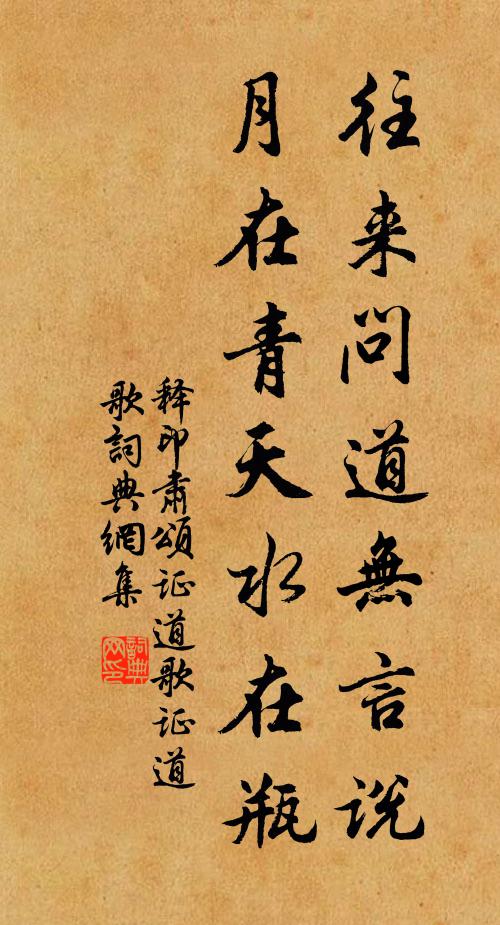 往来問道無言说
月在青天水在瓶
释印肃頌证道歌证道
歌詞典網集
詞典网印